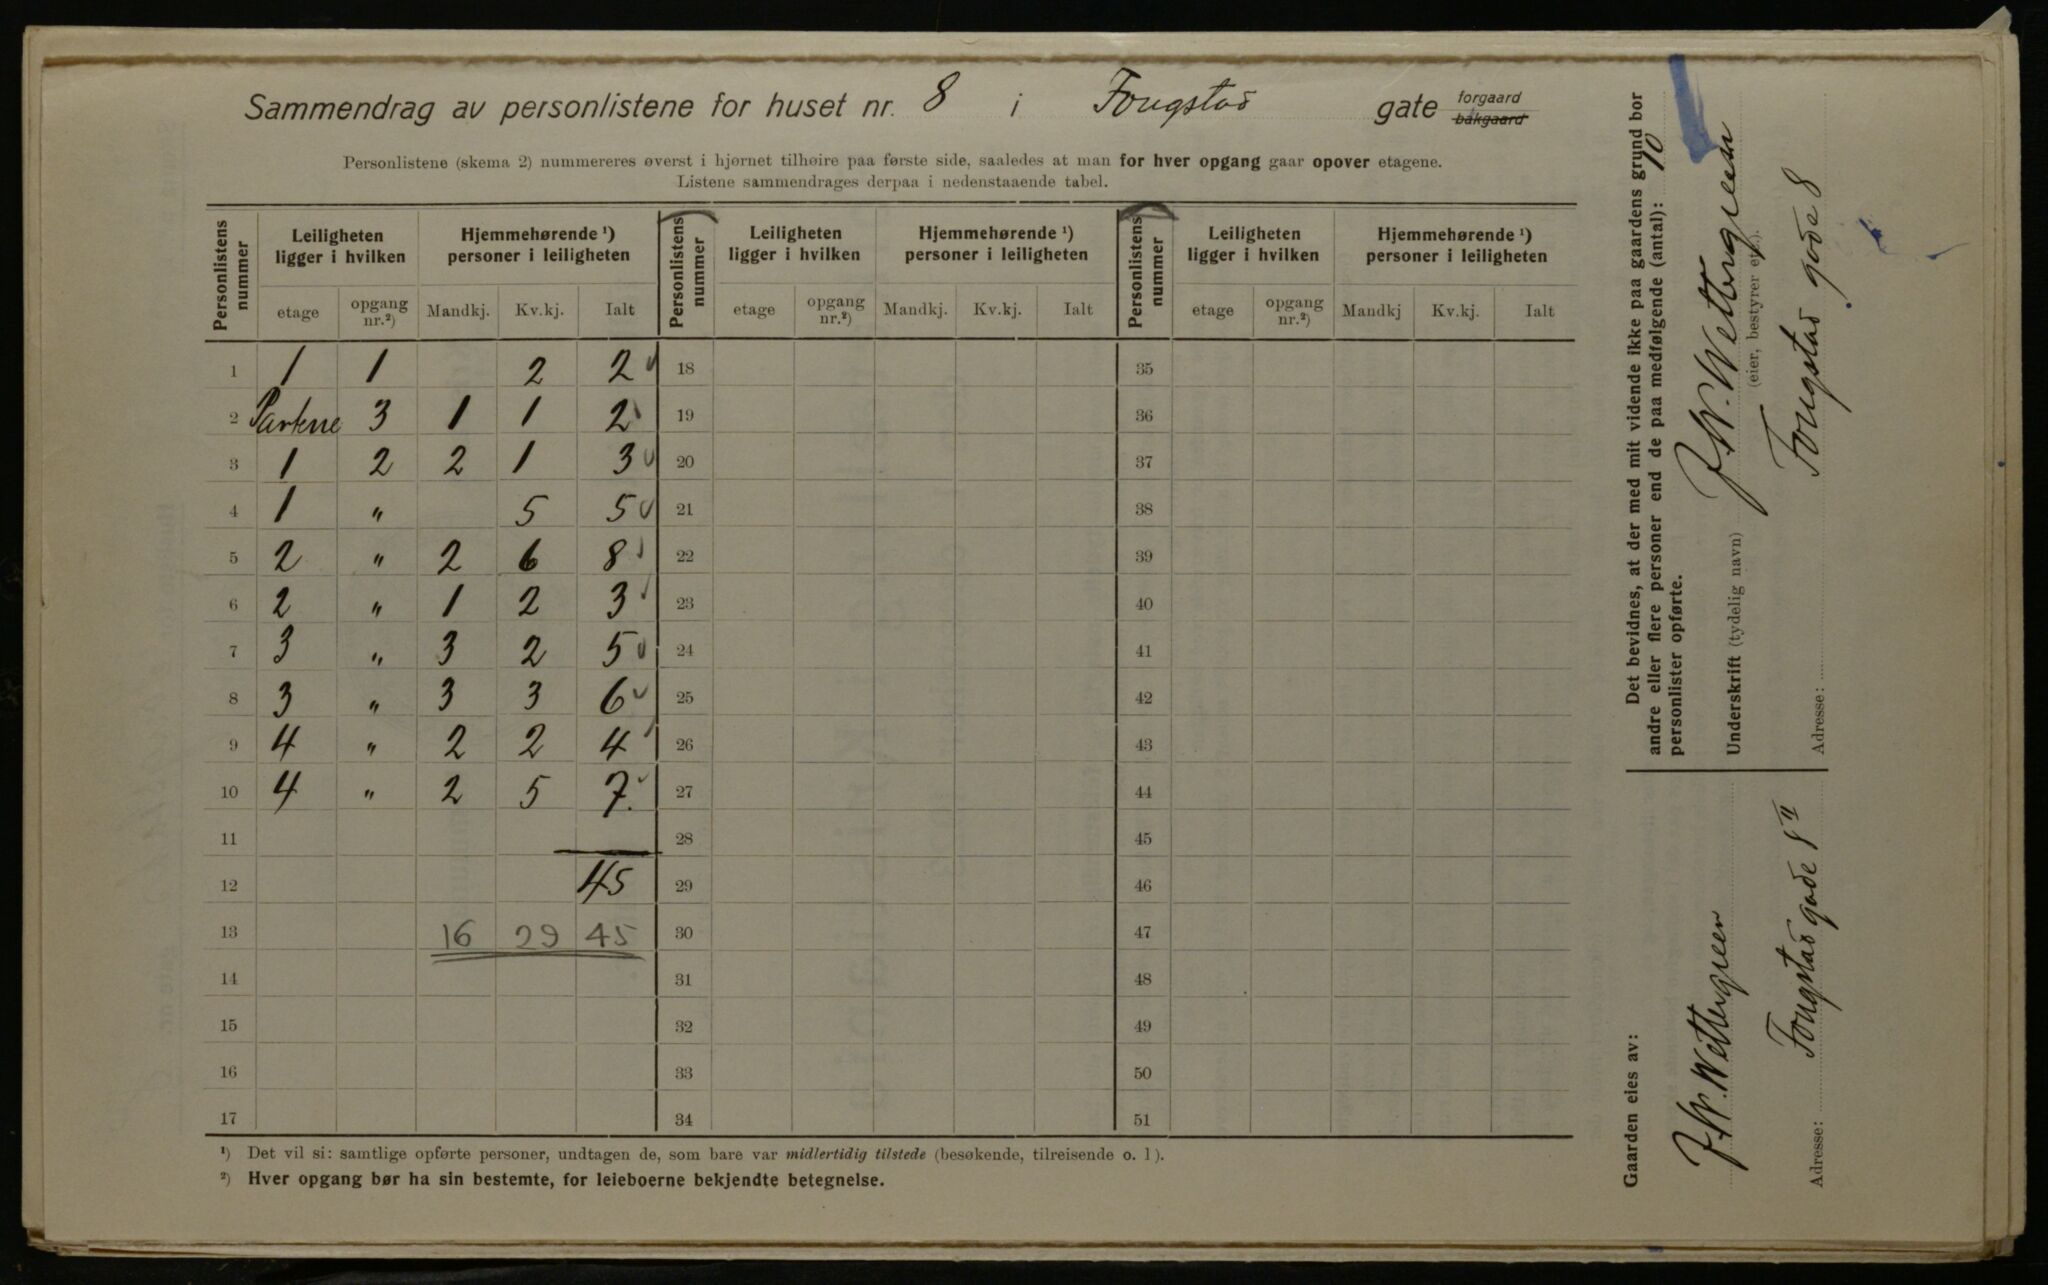 Sammendrag av personlistene for huset nr. 8 i Fougstad gate forgaard bakgaard
Personlistene (skema 2) nummereres øverst i hjørnet tilhøire paa første side, saaledes at man for hver opgang gaar opover etagene.
Listene sammendrages derpaa i nedenstaaende tabel.
Personlistens nummer | Leiligheten ligger i hvilken | Hjemmehørende ¹) personer i leiligheten | Personlistens nummer | Leiligheten ligger i hvilken | Hjemmehørende ¹) personer i leiligheten | Personlistens nummer | Leiligheten ligger i hvilken | Hjemmehørende ¹) personer i leiligheten
etage | opgang nr.²) | Mandkj. | Kv.kj. | Ialt | etage | opgang nr.²) | Mandkj. | Kv.kj. | Ialt | etage | opgang nr.²) | Mandkj | Kv.kj. | Ialt
1 | 1 | 1 | | 2 | 2 | 18 | 35
2 | Parterre | 3 | 1 | 1 | 2 | 19 | 36
3 | 1 | 2 | 2 | 1 | 3 | 20 | 37
4 | 1 | " | | 5 | 5 | 21 | 38
5 | 2 | " | 2 | 6 | 8 | 22 | 39
6 | 2 | " | 1 | 2 | 3 | 23 | 40
7 | 3 | " | 3 | 2 | 5 | 24 | 41
8 | 3 | " | 3 | 3 | 6 | 25 | 42
9 | 4 | " | 2 | 2 | 4 | 26 | 43
10 | 4 | " | 2 | 5 | 7. | 27 | 44
11 | 28 | 45
12 | 45 | 29 | 46
13 | 16 | 29 | 45 | 30 | 47
14 | 31 | 48
15 | 32 | 49
16 | 33 | 50
17 | 34 | 51
¹) Det vil si: samtlige opførte personer, undtagen de, som bare var midlertidig tilstede (besøkende, tilreisende o. l).
²) Hver opgang bør ha sin bestemte, for leieboerne bekjendte betegnelse.
Det bevidnes, at der med mit vidende ikke paa gaardens grund bor
andre eller flere personer end de paa medfølgende (antal): 10
personlister opførte.
Underskrift (tydelig navn) J.W. Wettergreen
(eier, bestyrer etc.).
Adresse: Fougstad gade 8
Gaarden eies av:
J.W. Wettergreen
Adresse: Fougstad gade 8 II